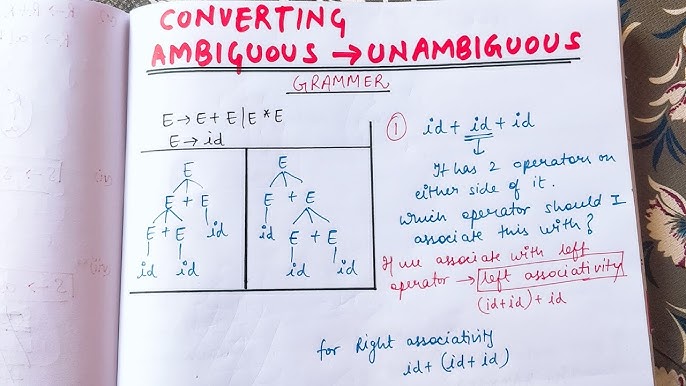 CONVERTING
AMBIGUOUS → UNAMBIGUOUS
GRAMMER
E → E + E | E * E
E → id
E
E + E
E + E id
id id
E
E + E
id E + E
id id
① id + id + id
It has 2 operators on
either side of it.
Which operator should I
associate this with?
If we associate with left
operator → left associativity
(id+id) + id
for Right associativity
id + (id + id)